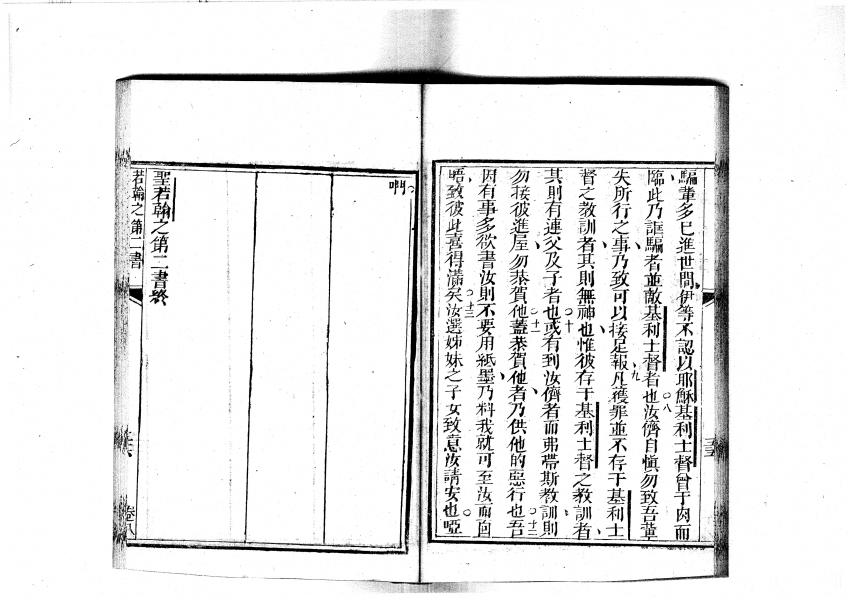 騙輩多已進世間伊等不認以耶穌基利士督曾于肉而
臨此乃誆騙者並敵基利士督者也○八汝儕自愼勿致吾輩
失所行之事乃致可以接足報○九凡獲罪並不存于基利士
督之教訓者其則無神也惟彼存于基利士督之教訓者
其則有連父及子者也○十或有到汝儕者而弗帶斯教訓則
勿接彼進屋勿恭賀他○十一蓋恭賀他者乃供他的惡行也○十二吾
因有事多欲書汝則不要用紙墨乃料我就可至汝而面
晤致彼此喜得滿矣○十三汝選姊妹之子女致意汝請安也啞
啊
聖若翰之第二書終
若翰之第二書
卷八